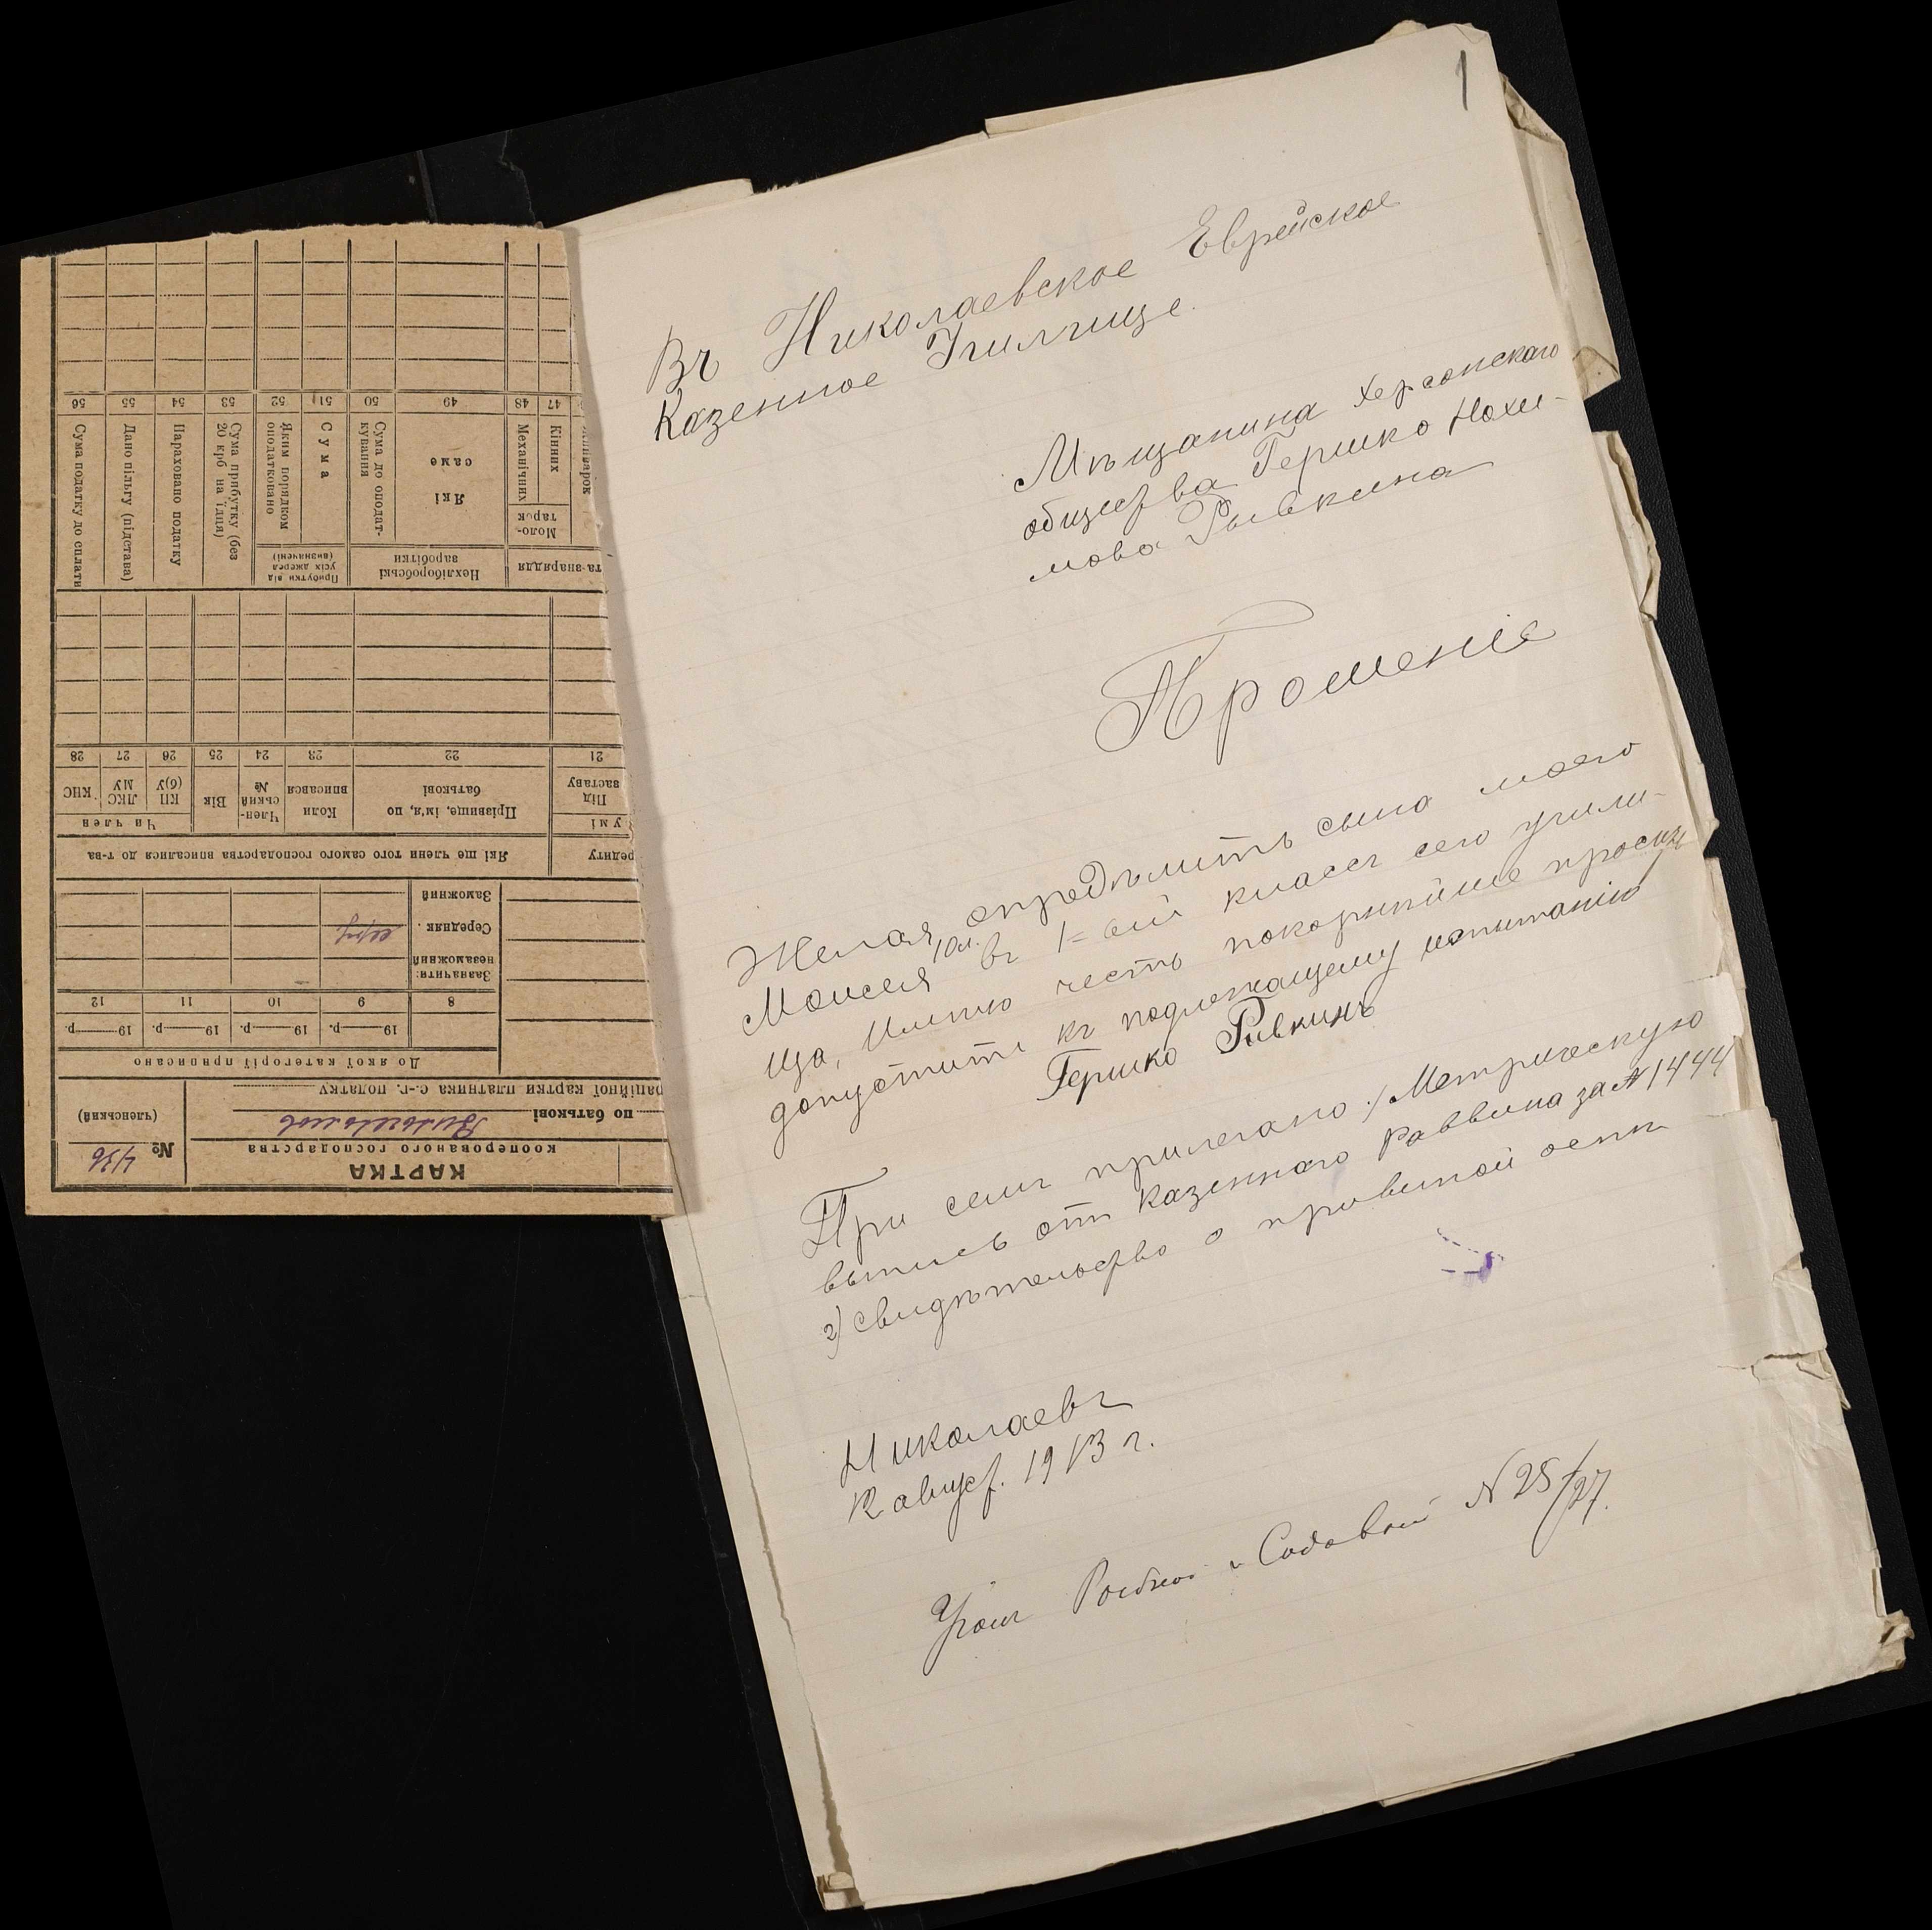 1
Въ Николаевское Еврейское
Казенное Училище.
Мѣщанина Херсонскаго
общества Гершко Нохи-
мова Рывкина
Прошеніе
Желая опредѣлить сына моего
Моисея, 10 л. въ 1-ый классъ сего учили-
ща, Имѣю честь покорнѣйше просить
допустить къ подлежащему испытанію
Гершко Рывкинъ
При семъ прилагаю 1/ Метрическую
выпись отъ Казеннаго Раввина за № 1444
2) свидѣтельство о привитой оспѣ
Николаевъ
12 август. 1913 г.
Уголъ и Садовой № 25/27.
КАРТКА
кооперованого господарства
№ 436
(членський)
по батькові
раційної картки платника с.-г. податку
До якої категорії приписано
19 р. 19 р. 19 р. 19 р.
8 9 10 11 12
Зазначити:
незаможний
Середняк
Заможний
редиту
Які ще члени того самого господарства вписалися до т-ва
умі
Під заставу
Прізвище, ім'я, по батькові
Коли вписався
Член-ський №
Вік
Чи член
КП(б)У
ЛКСМУ
КНС
21 22 23 24 25 26 27 28
та знаряддя
Нехліборобські заробітки
Прибутки від усіх джерел (визначені)
Моло-тарок
Кінних
Механічних
Які саме
Сума до оподат-кування
Сума
Яким порядком оподатковано
Сума прибутку (без 20 крб на їдця)
Нараховано податку
Дано пільгу (підстава)
Сума податку до сплати
47 48 49 50 51 52 53 54 55 56